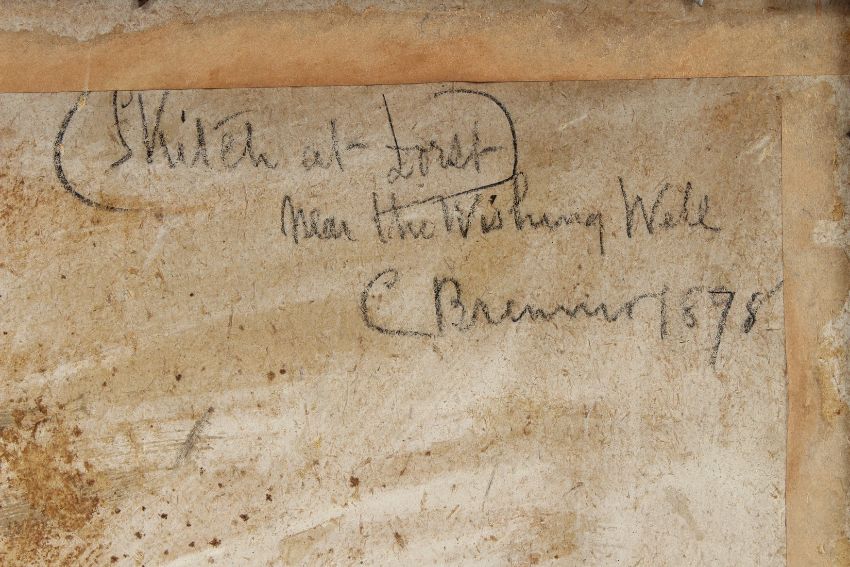 Sketch at Forst
near the Wishing Well
C Brenner 1878